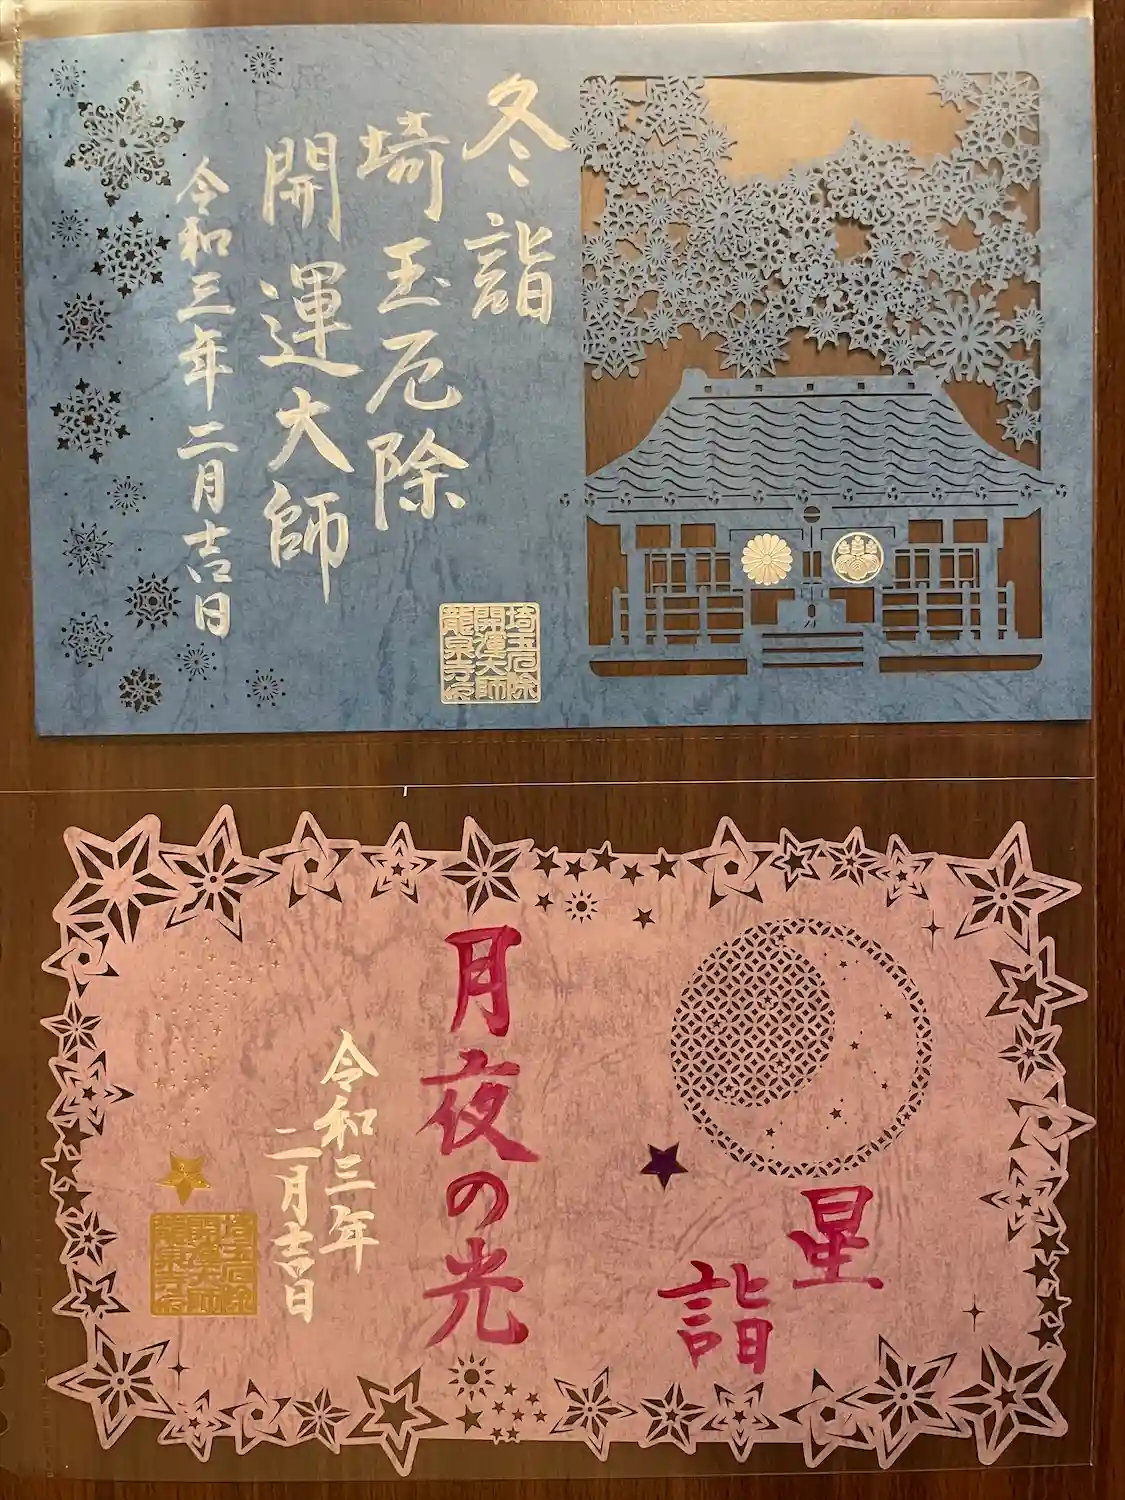 冬詣
埼玉厄除
開運大師
令和三年二月吉日
埼玉厄除
開運大師
龍泉寺印
星
詣
月夜の光
令和三年
二月吉日
埼玉厄除
開運大師
龍泉寺印